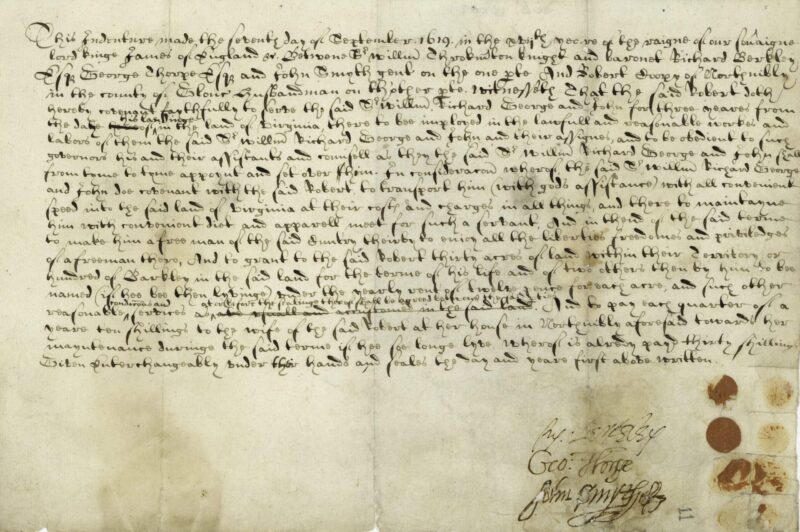 This Indenture made the seventh day of September. 1619. in the yeere of the raigne of our
lord kinge James of England &c. Betwene Sr Willm Throkmorton knight and baronet Richard Berkley
Esqr George Thorpe Esqr and John Smyth gent on the one pte And Robert Coopy of Northnibly
in the county of Glouc husbandman on thother pte. Witnesseth That the said Robert doth
hereby covenant faithfully to serve the said Sr Willm Richard George and John for three yeares from
the daye of his landinge in the land of Virginia, there to bee imployed in the lawfull and reasonable workes and
labors of them the said Sr Willm Richard George and John and their assignes, and to be obedient to such
governors his and their assistants and counsell as they the said Sr Willm Richard George and John shall
from tyme to tyme appoint and set over him. In consideracon wherof the said Sr Willm Richard George
and John doe covenant with the said Robert to transport him (with gods assistance) with all convenient
speed into the said land of Virginia at their costs and charges in all things, and there to maintayne
him with convenient diet and apparell meet for such a servant, And in thend of the said terme
to make him a free man of the said Cuntry theirby to enioy all the liberties freedomes and priviledges
of a freeman there, And to grant to the said Robert thirty acres of land within their Territory or
hundred of Barkley in the said land for the terme of his life and of two others then by him to bee
named (if hee bee then lyvinge) under the yearly rent of twelve pence for each acre, and such other
reasonable services as condicions and in the said land. And to pay each quarter of a
yeare ten shillings to the wife of the said Robert at her house in Northnibly aforesaid towards her
mayntenance duringe the said terme if hee soe longe lyve wherof is already payd thirty shillings
Given Interchangeably under their hands and seales the day and yeare first above written.
Geo: Thorpe
John Smyth